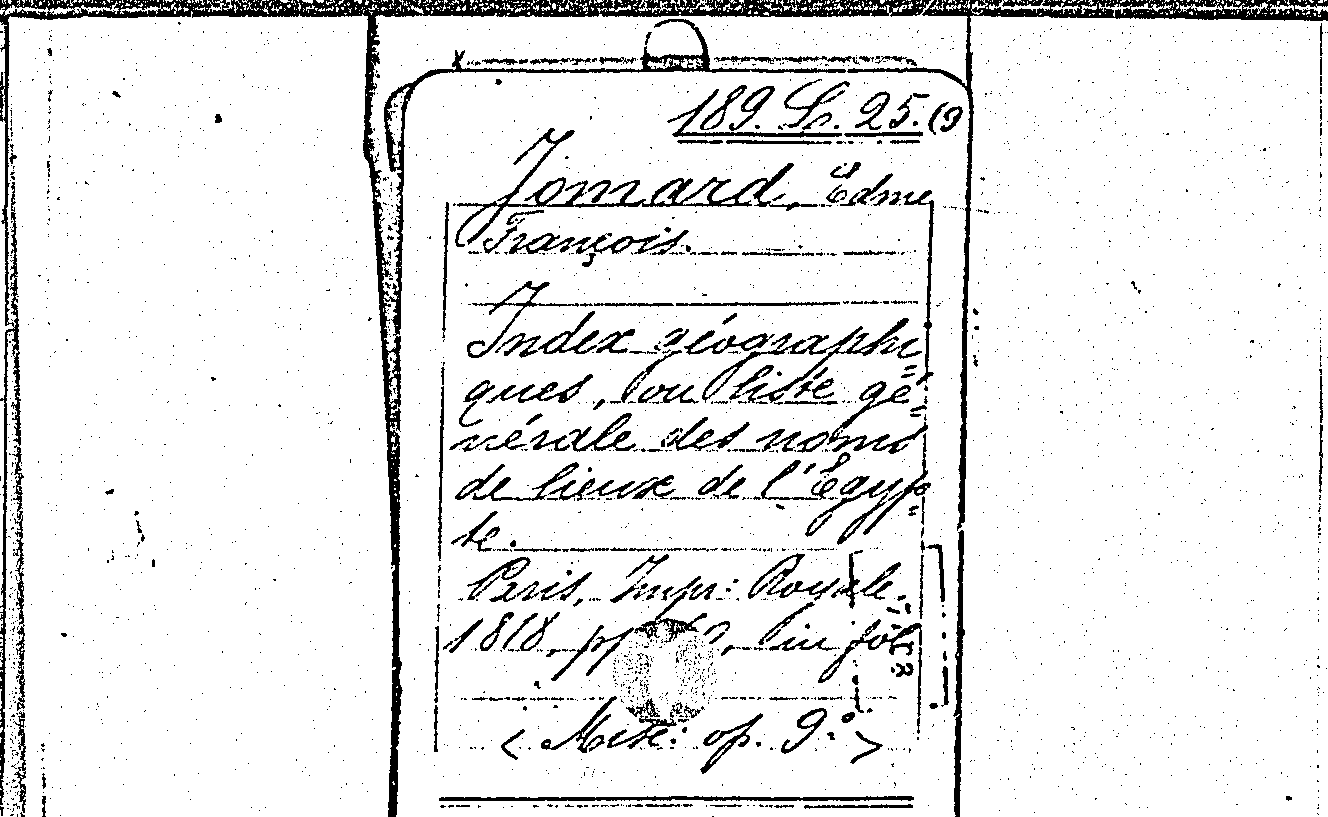 189. Sr. 25. (9
Jomard, Edme
François.
Index géographi=
ques, ou liste gé=
nérale des noms
de lieux de l'Egyp=
te.
Paris, Impr: Royale,
1818, pp , in fol
< Misc: op. 9º >